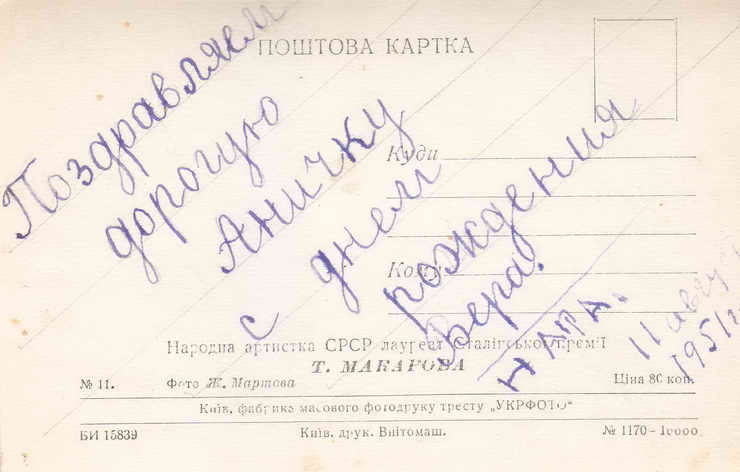 ПОШТОВА КАРТКА
Поздравляем
дорогую
Аничку
с днем
рождения
Вера.
НАТА.
11 август
1951 г
Куди
Кому
Народна артистка СРСР лауреат Сталінської премії
Т. МАКАРОВА
№ 11. Фото Ж. Мартова Ціна 80 коп.
Київ, фабрика масового фотодруку тресту „УКРФОТО"
БИ 15839 Київ, друк. Внітомаш. № 1170-10000